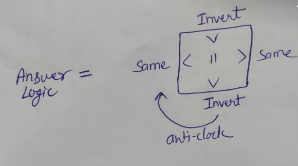 Invert
Answer Logic =
Same
Same
Invert
anti-clock